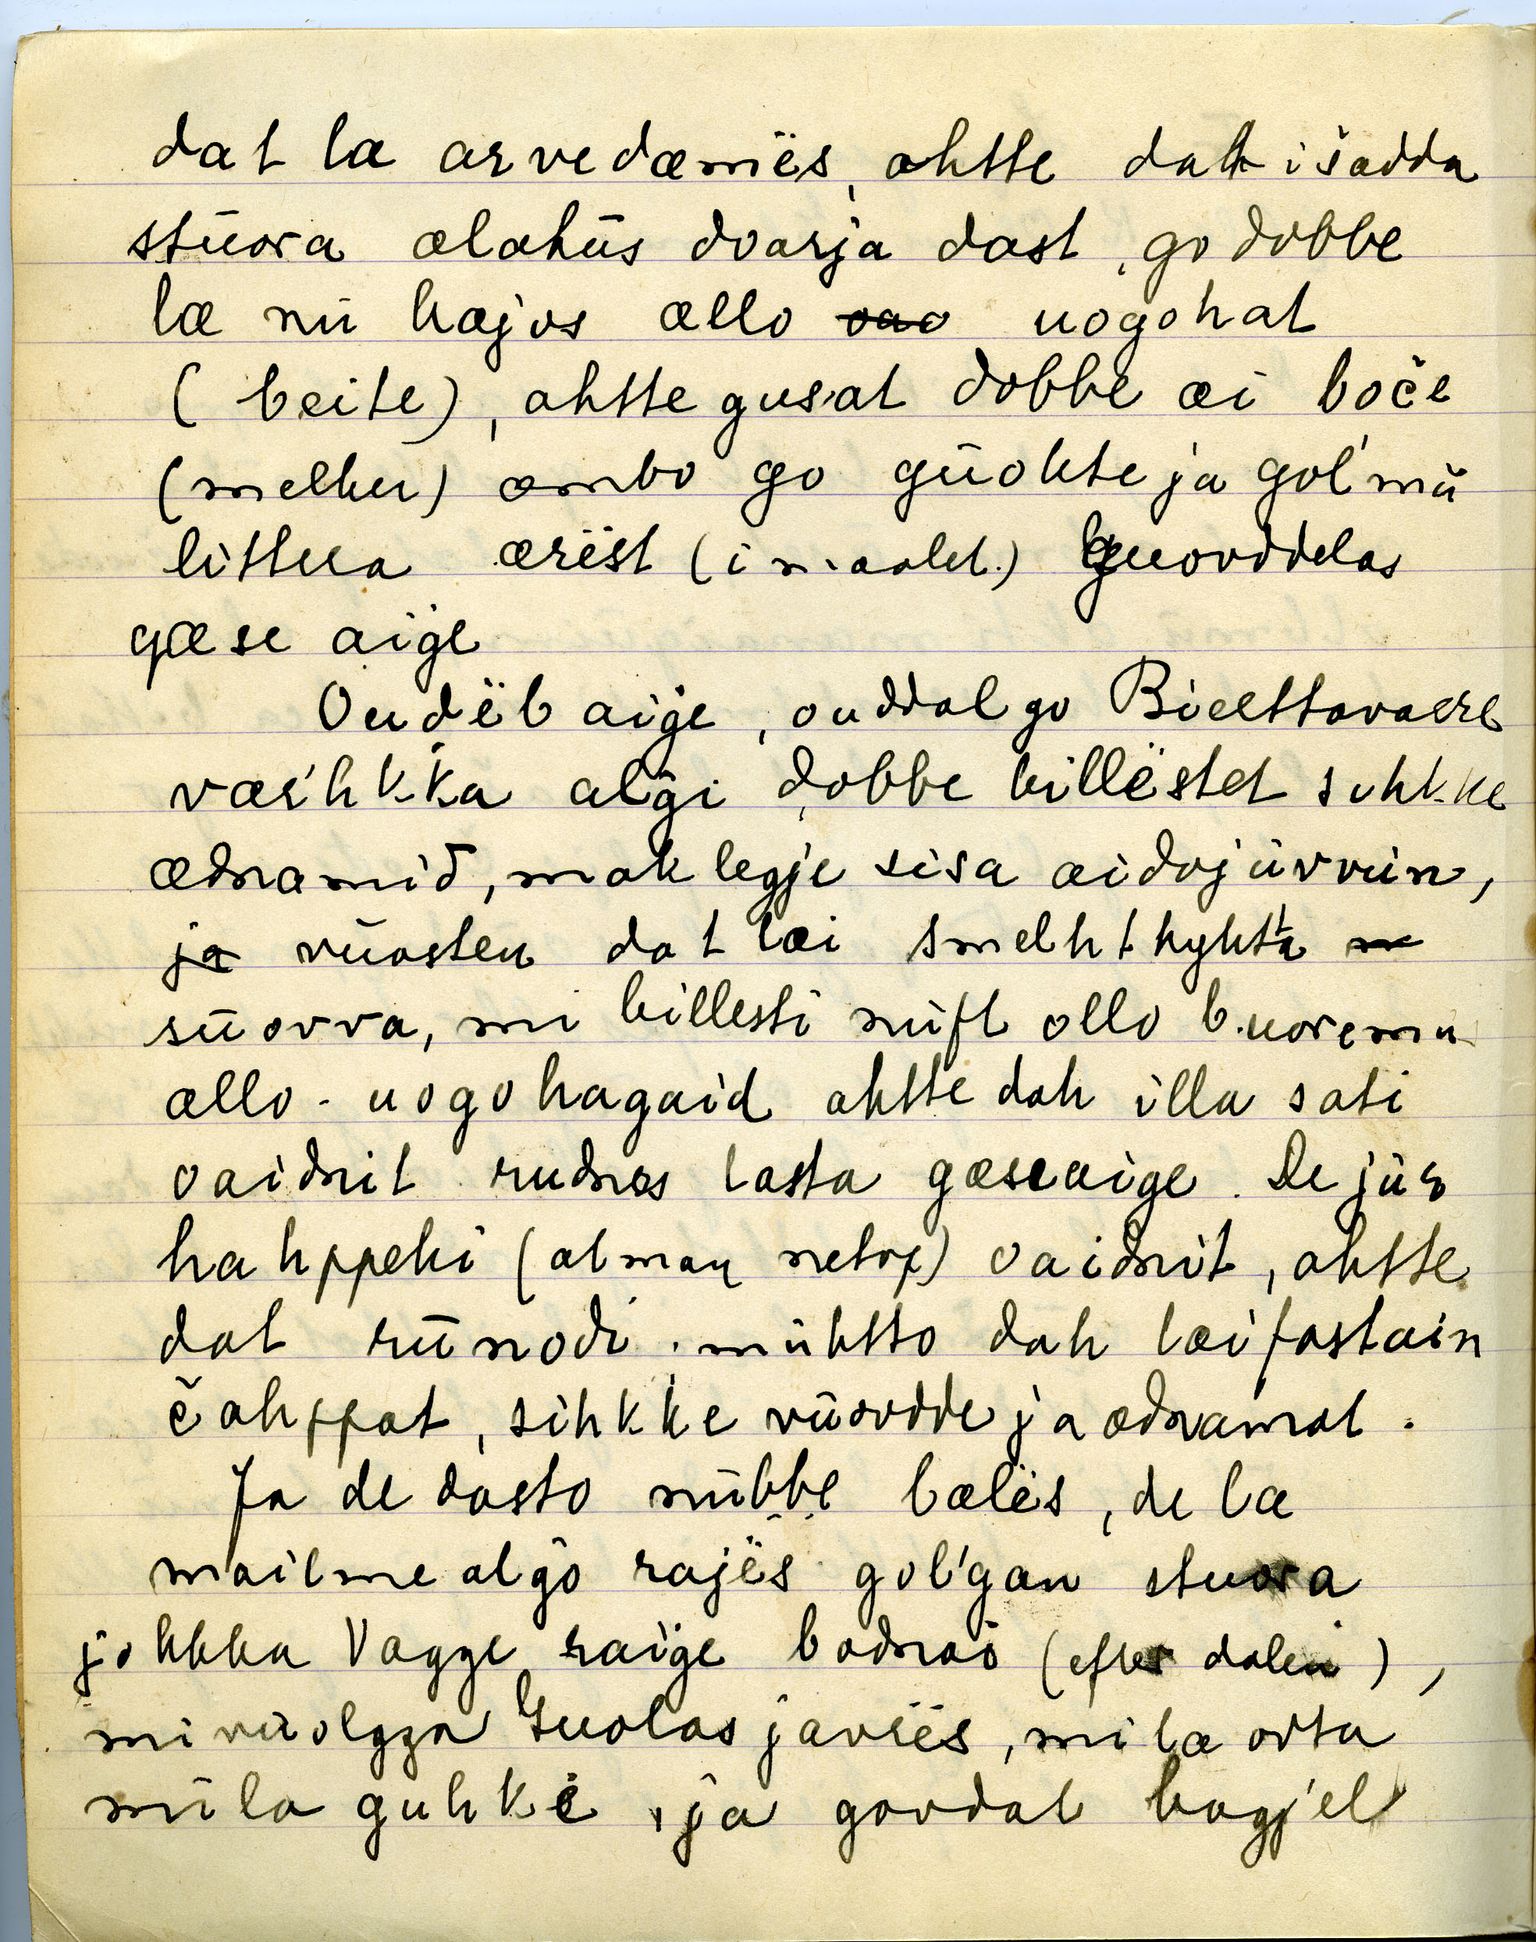 dat læ arvedæmiës, ahtte dah i šadda
stūora ælahūs dvarja dast, go dobbe
læ nū hæjos ællo uogohat
(beite), ahtte gusat dobbe æi boče
(melker) æmbo go gūokte ja gol'mū
littera ærëst (i maalet) guovddelas
gæse aige
Oudëb aige, ouddal go Bicettavaere
væŕhkka algi dobbe billëstet sihkke
ædnamid, mak legje sisa æidojūvvun,
ja vūosteu dat læi smelhthyhta
sūovva, mi billesti nūft ollo buoremu
ællo-uogohagaid ahtte dah illa sati
oaidnit rudnos lasta gæseaige. De jūs
hahppehi (at man netop) oaidnit, ahtte
dat rūnodi. mūhtto dah læi fastain
čahppat, sihkke vūovdde ja ædnamat.
Ja de dasto nūbbe bælës, de læ
mailme algo rajës gol'gan stuora
johkka Vagge raige bodnos (efter dalen),
mi vuolgga Guolasjavrës, mi læ ovta
mūla guhkë, ja govdat bagj'el